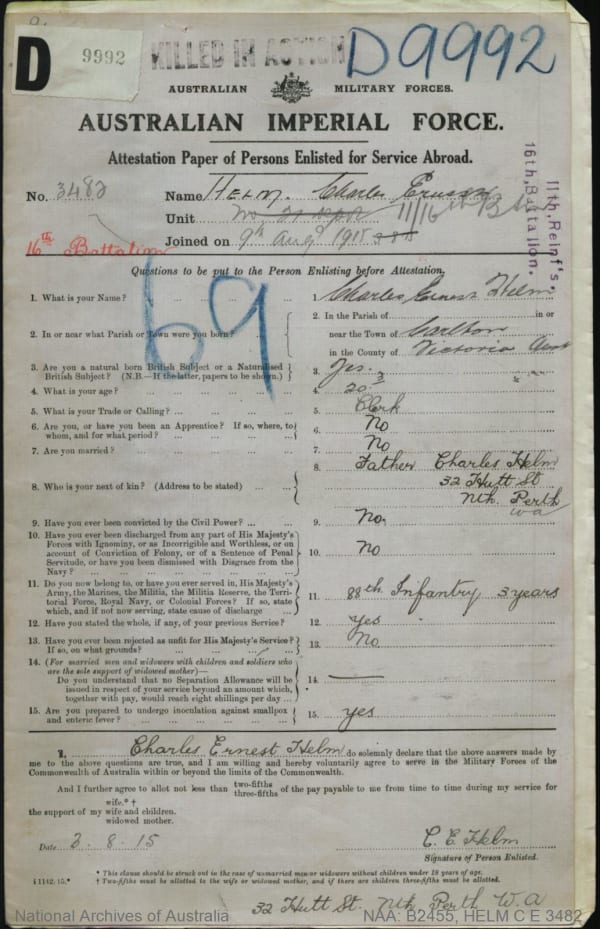 D 9992 KILLED IN ACTION D9992
AUSTRALIAN MILITARY FORCES.
AUSTRALIAN IMPERIAL FORCE.
Attestation Paper of Persons Enlisted for Service Abroad.
No. 3482 Name HELM. Charles Ernest
Unit 11/16th Btn
Joined on 9th Aug 1915
16th Battalion
11th, Reinf's,
16th, Battalion,
69
Questions to be put to the Person Enlisting before Attestation.
1. What is your Name? ... 1. Charles Ernest Helm
2. In or near what Parish or Town were you born? 2. In the Parish of in or
near the Town of Carlton
in the County of Victoria Aust
3. Are you a natural born British Subject or a Naturalised
British Subject? (N.B.—If the latter, papers to be shown.) 3. Yes.
4. What is your age? 4. 20 3
5. What is your Trade or Calling? ... 5. Clerk
6. Are you, or have you been an Apprentice? If so, where, to
whom, and for what period? 6. No
7. Are you married? 7. No
8. Who is your next of kin? (Address to be stated) 8. Father Charles Helm
32 Hutt St
Nth. Perth
WA
9. Have you ever been convicted by the Civil Power? ... 9. No.
10. Have you ever been discharged from any part of His Majesty's
Forces with Ignominy, or as Incorrigible and Worthless, or on
account of Conviction of Felony, or of a Sentence of Penal
Servitude, or have you been dismissed with Disgrace from the
Navy? 10. No
11. Do you now belong to, or have you ever served in, His Majesty's
Army, the Marines, the Militia, the Militia Reserve, the Terri-
torial Force, Royal Navy, or Colonial Forces? If so, state
which, and if not now serving, state cause of discharge 11. 88th Infantry 3 years
12. Have you stated the whole, if any, of your previous Service? 12. Yes
13. Have you ever been rejected as unfit for His Majesty's Service?
If so, on what grounds? 13. No
14. (For married men and widowers with children and soldiers who
are the sole support of widowed mother)—
Do you understand that no Separation Allowance will be
issued in respect of your service beyond an amount which,
together with pay, would reach eight shillings per day ... 14. —
15. Are you prepared to undergo inoculation against smallpox
and enteric fever? 15. yes
I, Charles Ernest Helm do solemnly declare that the above answers made by
me to the above questions are true, and I am willing and hereby voluntarily agree to serve in the Military Forces of the
Commonwealth of Australia within or beyond the limits of the Commonwealth.
And I further agree to allot not less than two-fifths three-fifths of the pay payable to me from time to time during my service for
wife.*†
the support of my wife and children.
widowed mother.
Date 3.8.15 C. E. Helm
Signature of Person Enlisted.
* This clause should be struck out in the case of unmarried men or widowers without children under 18 years of age.
§ 1142.15.* † Two-fifths must be allotted to the wife or widowed mother, and if there are children three-fifths must be allotted.
32 Hutt St. Nth. Perth W.A
National Archives of Australia NAA: B2455, HELM C E 3482